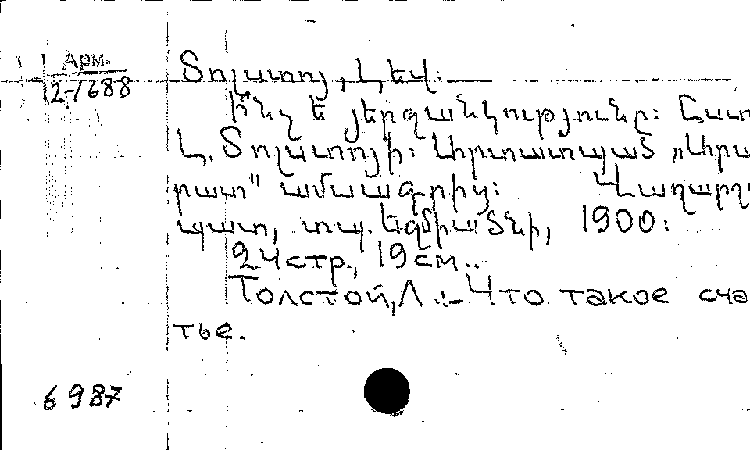 Арм.
2-7688
Տոլստոյ, Լեվ.
Ի՞նչ է յերջանկությունը: Ըստ
Լ. Տոլստոյի: Արտատպած „Արա
րատ" ամսագրից: Վաղարշ
պատ, տպ. Էջմիածնի, 1900:
24 стр., 19 см..
Толстой, Л.:- Что такое сча
тье.
6987